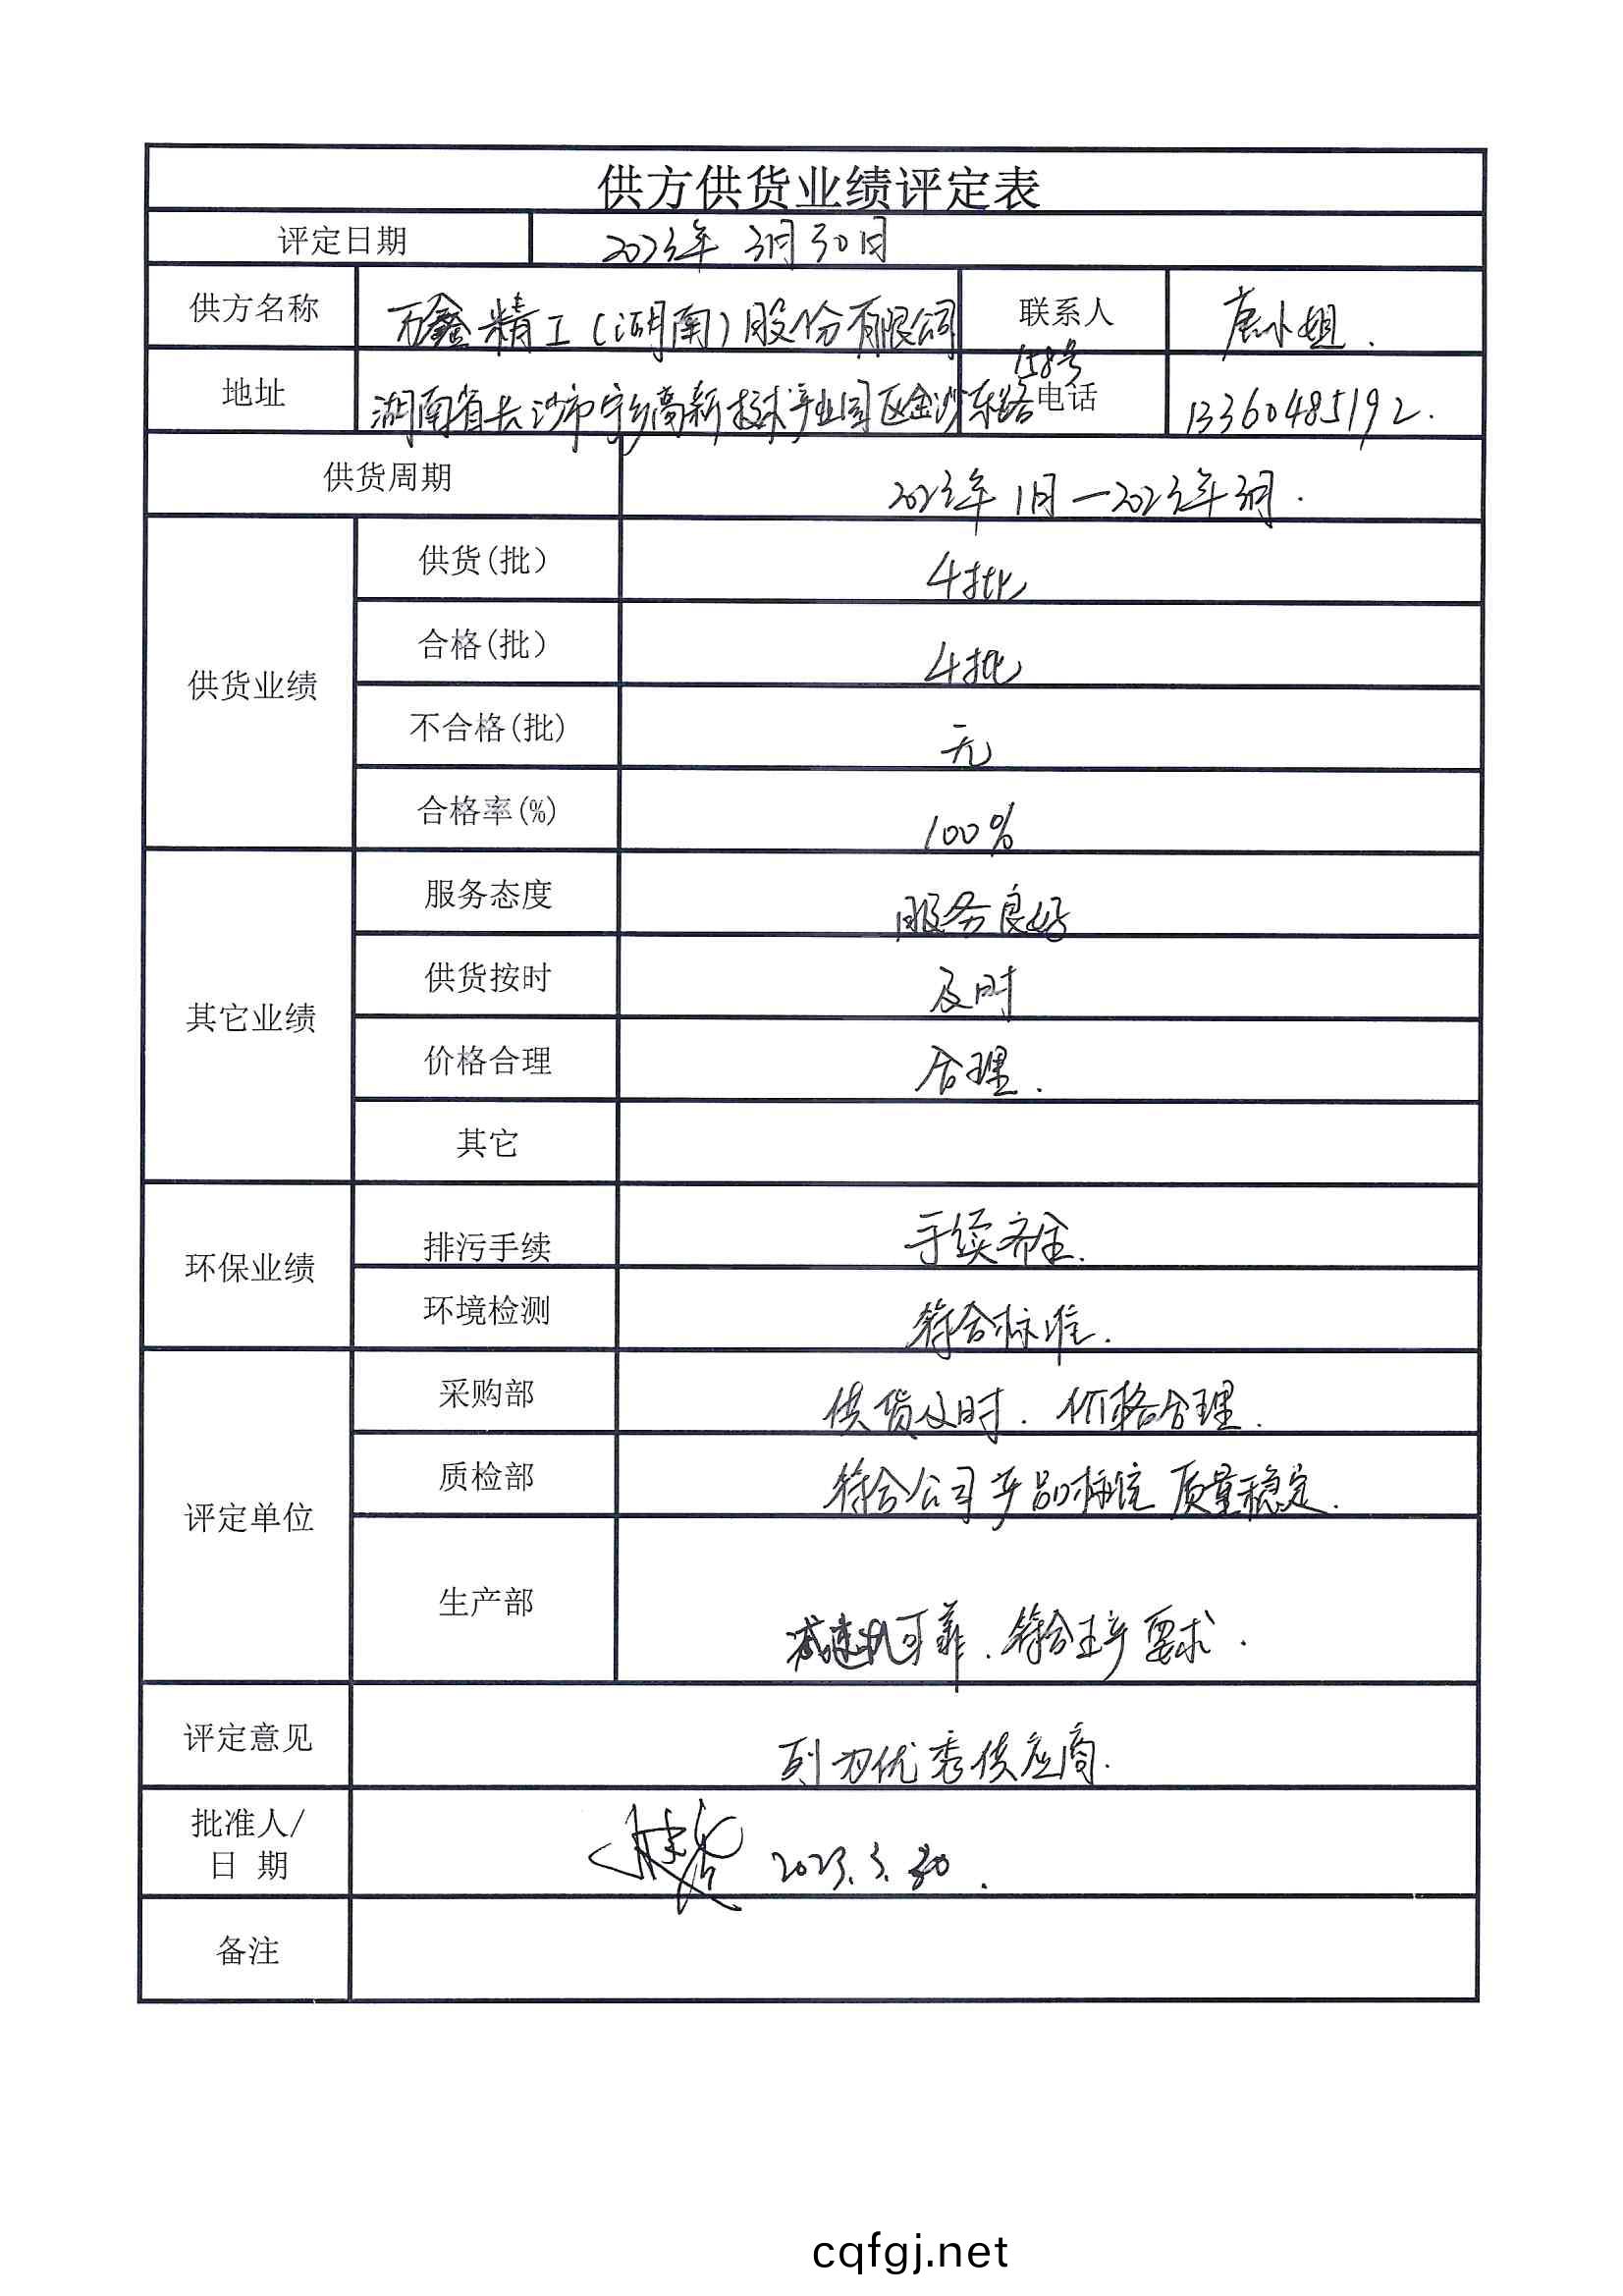 供方供货业绩评定表
评定日期 2023年 3月30日
供方名称 万鑫精工（湖南）股份有限公司 联系人 唐小姐.
地址 湖南省长沙市宁乡高新技术产业园区金沙东路158号 电话 13360485192.
供货周期 2023年1月—2023年3月.
供货业绩
供货(批) 4批
合格(批) 4批
不合格(批) 无
合格率(%) 100%
其它业绩
服务态度 服务良好
供货按时 及时
价格合理 合理.
其它
环保业绩
排污手续 手续齐全.
环境检测 符合标准.
评定单位
采购部 供货及时.价格合理.
质检部 符合公司产品标准 质量稳定.
生产部 减速机可靠.符合生产要求.
评定意见 列为优秀供应商.
批准人/
日 期 2023.3.30.
备注
cqfgj.net